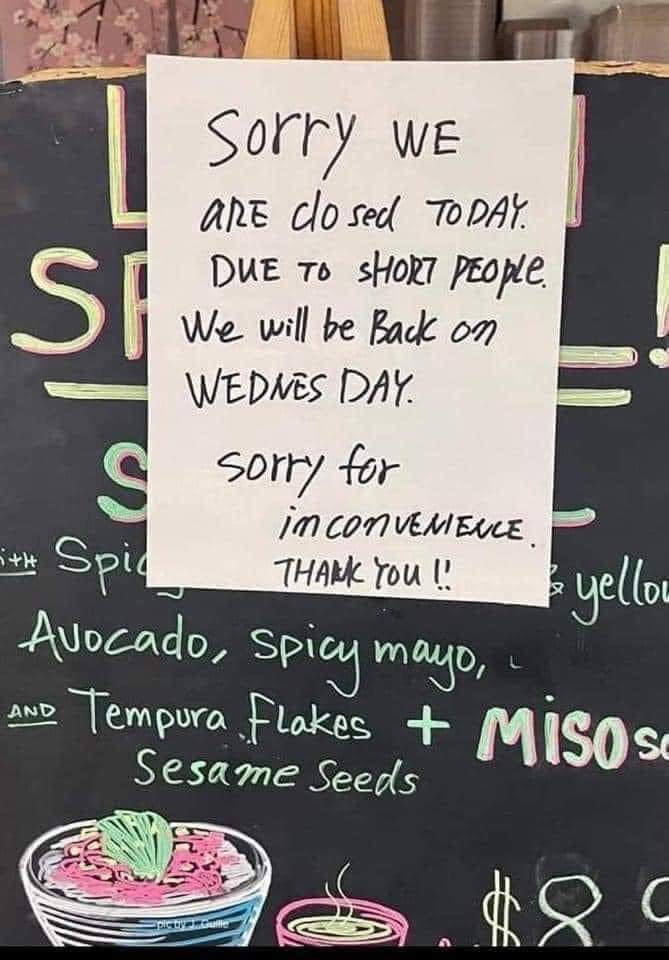 Sorry WE
ARE closed TODAY.
DUE TO SHORT PEOple.
We will be Back on
WEDNESDAY.
sorry for
inconVENIENCE.
THANK You !!
L
SP
!
S
ith Spic
& yellow
Avocado, spicy mayo,
AND Tempura Flakes + MISO so
Sesame Seeds
pic by J. Guille
$8.9